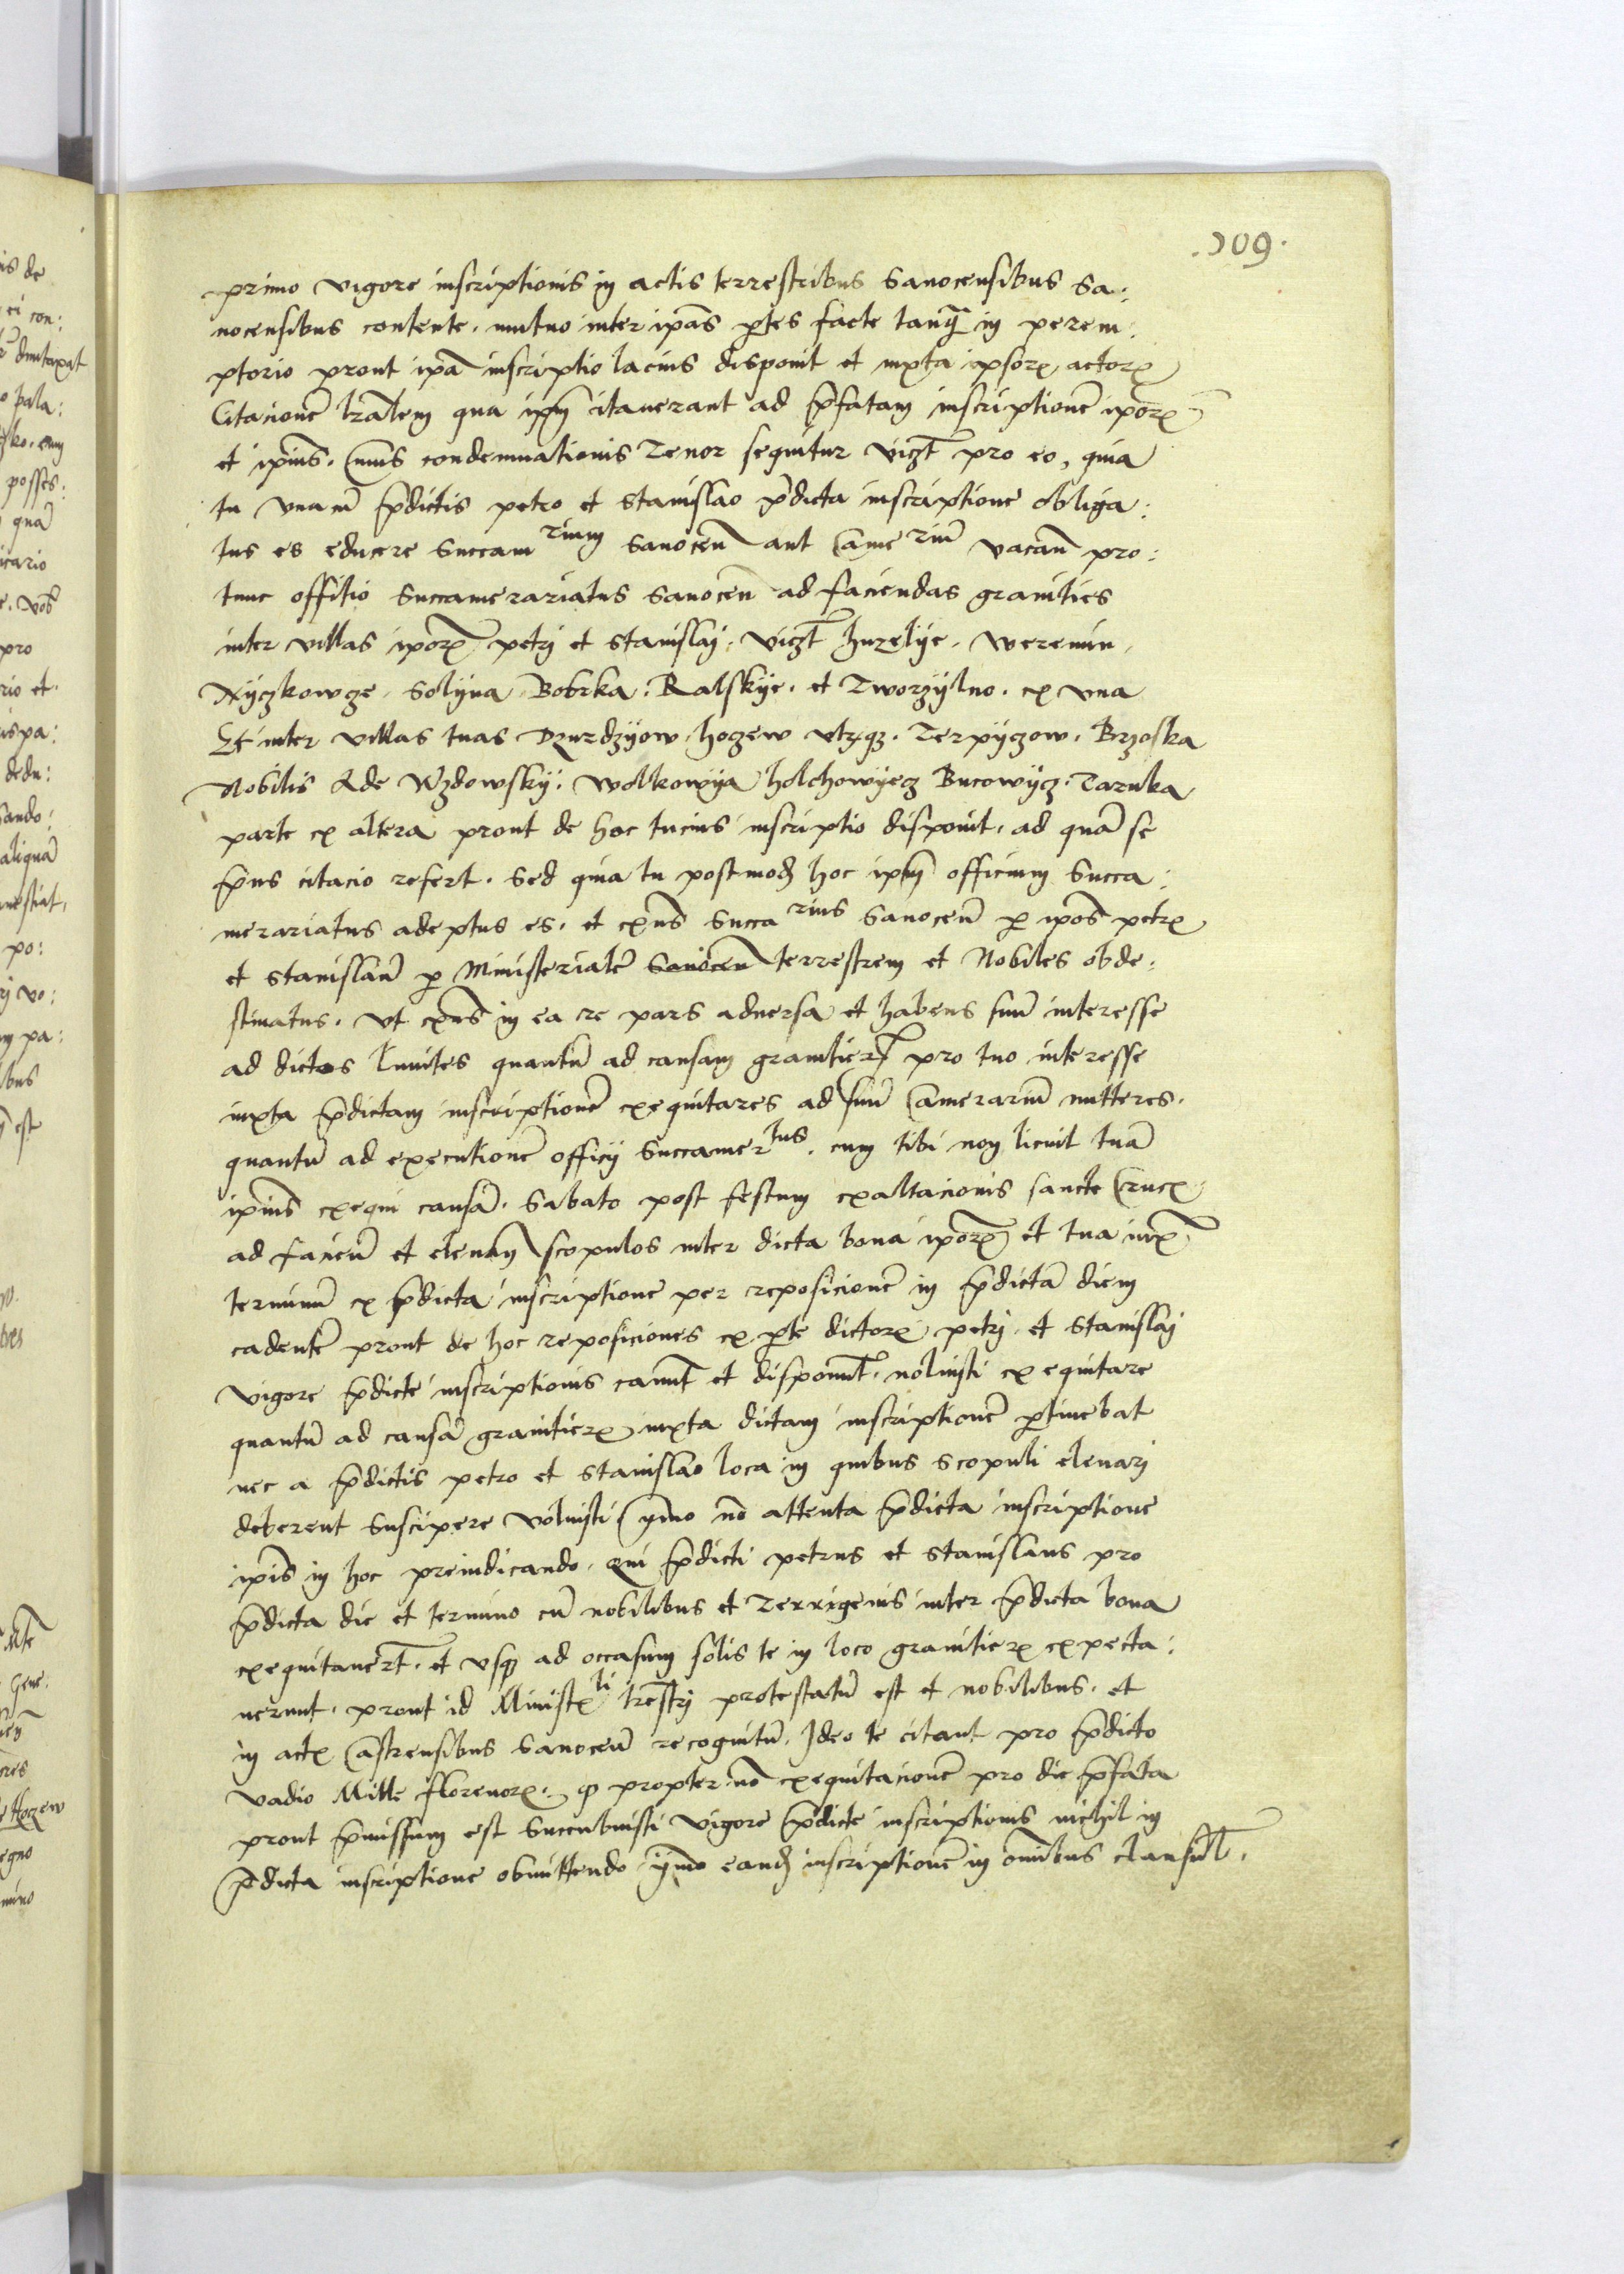 .109.
primo vigore inscriptionis in actis terrestribus Sanocensibus Sa:
nocensibus contente. mutuo inter ipas ptes facte tanq̃ in perem:
ptorio prout ipa inscriptio lacius disponit et iuxta ipsorꝝ actorꝝ
Citacionē lralem qua ipm citauerant ad p̃fatam inscriptionē iporꝝ
et ipius. Cuius condemnationis Tenor sequitur vičzt pro eo, quia
tu vnam p̃dictis petro et Stanislao p̃dicta inscriptione obliga:
tus es educere Succamrium Sanocen̄ aut Camerium vacan̄ pro:
tunc offitio Succamerariatus Sanocen̄ ad faciendas granities
inter villas iporꝝ petri et Stanislaj. vičzt huzelye. weremin,
Myczkowcze. Solyna Bobrka. Ralskye. et Tworzylno. ex vna
Et inter villas tuas Dzurdzyow. hoczew vtrqz. Terpyczow. Brzoska
Nobilis Ade Wzdowsky. Wolkowya holchowyecz Bucowycz. Tarnka
parte ex altera prout de hoc tucius inscriptio disponit. ad quā se
p̃ns citacio refert. Sed quia tu postmodꝫ hoc ipm officium Succa:
merariatus adeptus es. et exn̄s Succarius Sanocen̄ ꝑ ipos petrꝝ
et Stanislaū ꝑ Ministerialē Sanocen̄ terrestrem et Nobiles obde:
stinatus. vt exn̄s in ea re pars aduersa et habens suū interesse
ad dictos limites quantū ad causam granitierꝝ pro tuo interesse
iuxta p̃dictam inscriptionē exequitares ad suū Camerariū mitteres.
quantū ad executionē officij Succamertus. cum tibi non licuit tuā
ipius exequi causā. Sabato post festum exaltacionis sancte Crucꝝ
ad facien̄ et eleuan̄ scopulos inter dicta bona iporꝝ et tua
terminū ex p̃dicta inscriptione per reposicionē in p̃dictā diem
cadentē prout de hoc reposiciones ex pte dictorꝝ petri et Stanislaj
vigore p̃dicte inscriptionis canūt et disponūt. noluisti exequitare
quantū ad causā granitierꝝ iuxta dictam inscriptionē ptinebat
nec a p̃dictis petro et Stanislao loca in quibus scopuli eleuari
deberent suscipere voluisti ymo nō attenta p̃dicta inscriptione
ipis in hoc preiudicando. Qui p̃dicti petrus et Stanislaus pro
p̃dicta die et termino cū nobilibus et Terrigenis inter p̃dicta bona
exequitauerūt. et vsqꝫ ad occasum solis te in loco granitierꝝ expecta:
uerunt. prout id Ministꝝli trestri protestatū est et nobilibus. et
in actꝝ Castrensibus Sanocen̄ recognitū. Ideo te citant pro p̃dicto
vadio Mille florenorꝝ. qꝫ propter nō exequitacionē pro die p̃fata
prout p̃missum est Succubuisti vigore p̃dicte inscriptionis nichil in
p̃dicta inscriptione obmittendo ymo eandꝫ inscriptionē in omibus clausul.